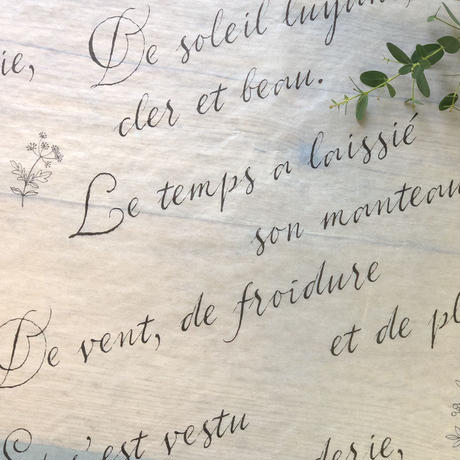 De soleil luyant,
ie,
cler et beau.
Le temps a laissié
son manteau
De vent, de froidure
et de pl
s'est vestu
derie,